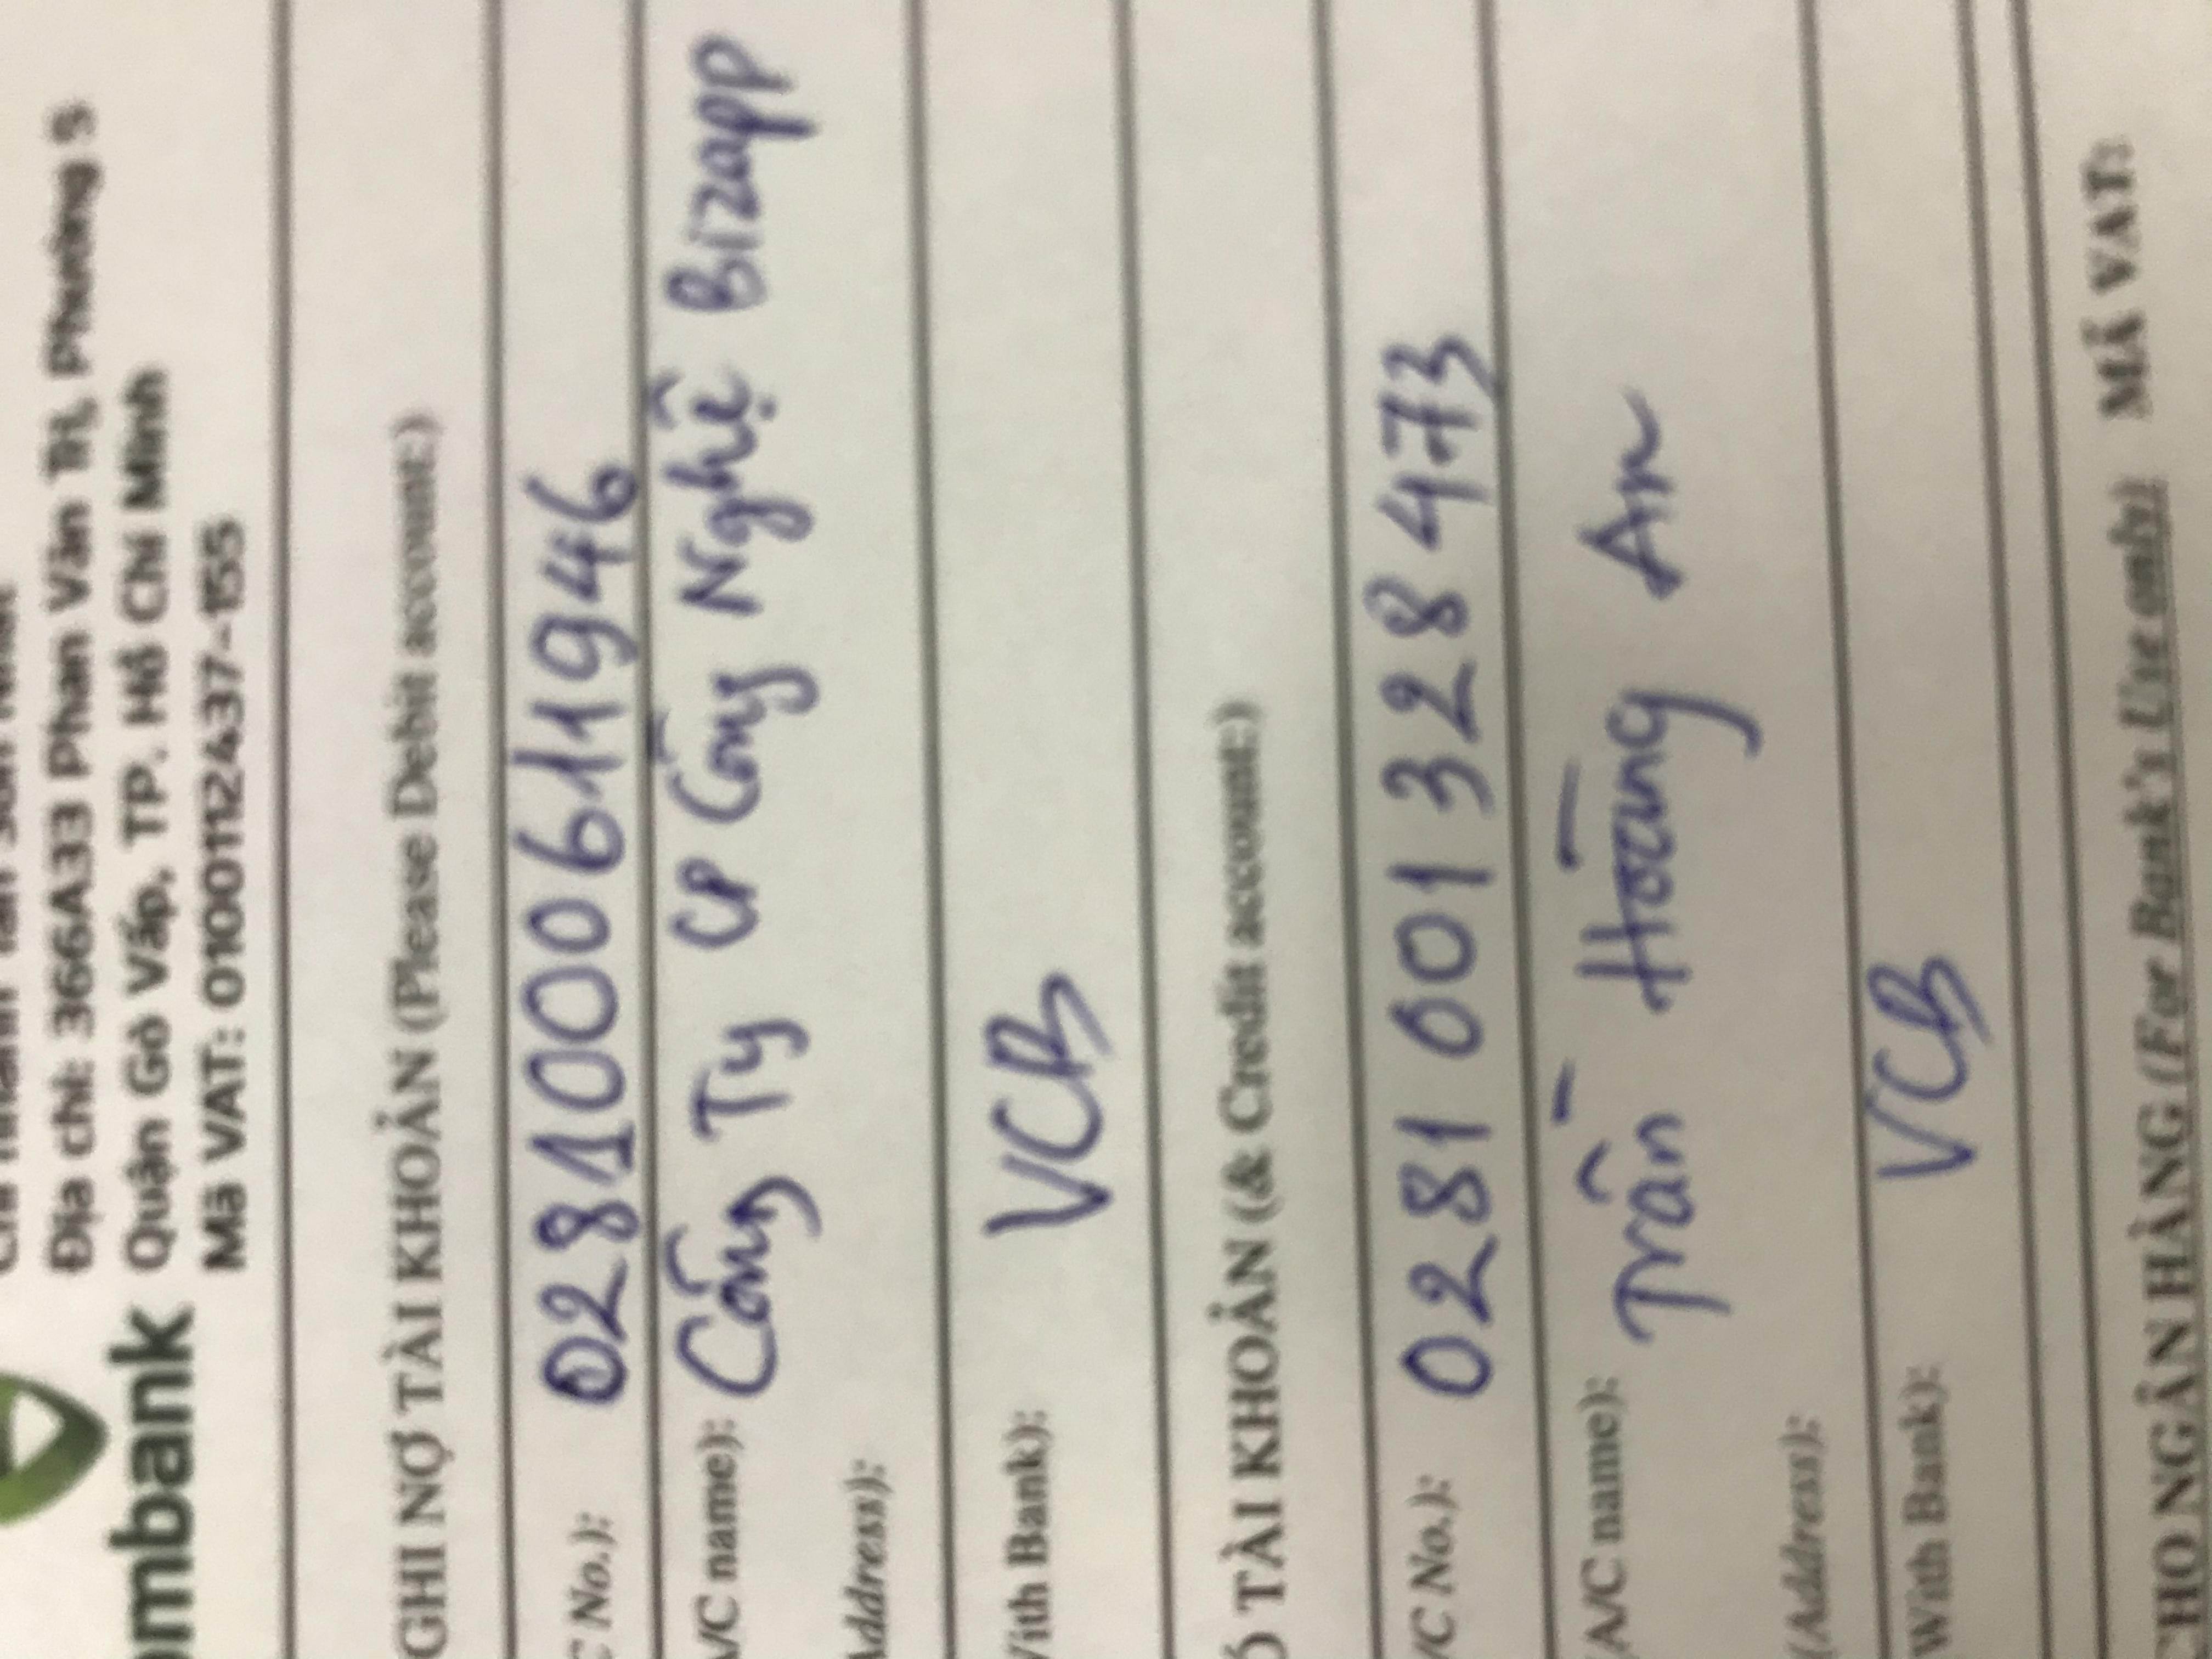 Chi nhánh Tân Sơn Nhất
Địa chỉ: 366A33 Phan Văn Trị, Phường 5
mbank
Quận Gò Vấp, TP. Hồ Chí Minh
Mã VAT: 0100112437-155
GHI NỢ TÀI KHOẢN (Please Debit account:)
C No.): 0281000611946
A/C name): Công Ty CP Công Nghệ Bizapp
Address):
With Bank): VCB
Ó TÀI KHOẢN (& Credit account:)
/C No.): 0281 001 328 473
(A/C name): Trần Hoàng An
(Address):
With Bank): VCB
CHO NGÂN HÀNG (For Bank's Use only) MÃ VAT: